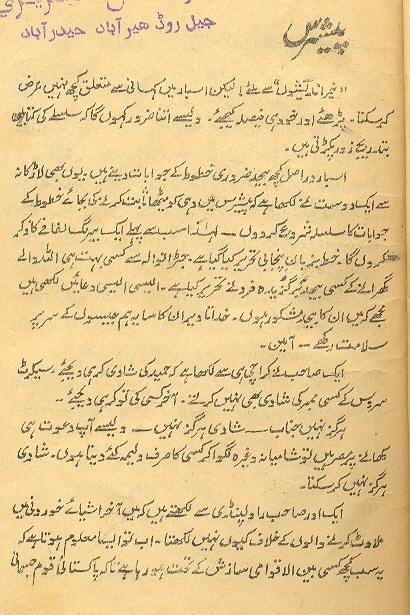 جیل روڈ ھیرآباد حیدرآباد
پیشرس
"غیر انا لیگیفوں" سے ملئے! لیکن اسبار میں کہانی سے متعلق کچھ نہیں عرض
کر سکتا۔ پڑھئے اور خود ہی فیصلہ کیجیئے۔ ویسے اتنا ضرور کہوں گا کہ سلسلے کی کتابیں
بتدریج زور پکڑتی ہیں۔
اسبار دراصل کچھ بیحد ضروری خطوط کے جوابات دینے ہیں۔ یوں بھی لاڑکانہ
سے ایک دوست نے لکھا ہے کہ پیشرس میں وہی کو میٹھا ثابت کرنے کی بجائے خطوط کے
جوابات کا سلسلہ شروع کردوں۔ لہٰذا سب سے پہلے ایک بیرنگ لفافے کا ذکر
کروں گا۔ خط بزبان پنجابی تحریر کیا گیا ہے۔ جڑانوالہ سے کسی بہت ہی اللہ والے
گھرانے کے کسی بیحد برگزیدہ فرد نے تحریر کیا ہے۔ ایسی ایسی دعائیں لکھی ہیں
مجھے کہ میں ان کا بیحد مشکور ہوں۔ خدا تا دیر ان کا سایہ ہم جیسوں کے سر پر
سلامت رکھے۔ آمین۔
ایک صاحب نے کراچی ہی سے لکھا ہے کہ حمید کی شادی کر ہی دیجئے۔ سیکرٹ
سروس کے کسی ممبر کی شادی بھی نہیں کرتے۔ آخر کسی کی تو کر ہی دیجئے۔
ہرگز نہیں جناب۔ شادی ہرگز نہیں۔ ویسے آپ دعوت ہی
کھانے پر مصر ہیں تو شامیانہ وغیرہ لگوا کر کسی کا صرف ولیمہ کئے دیتا ہوں۔ شادی
ہرگز نہیں کر سکتا۔
ایک اور صاحب راولپنڈی سے لکھتے ہیں کہ میں آخر اشیائے خوردنی میں
ملاوٹ کرنے والوں کے خلاف کیوں نہیں لکھتا۔ اب تو ایسا معلوم ہوتا ہے کہ
یہ سب کچھ کسی بین الاقوامی سازش کے تحت ہو رہا ہے تاکہ پاکستانی قوم جسمانی